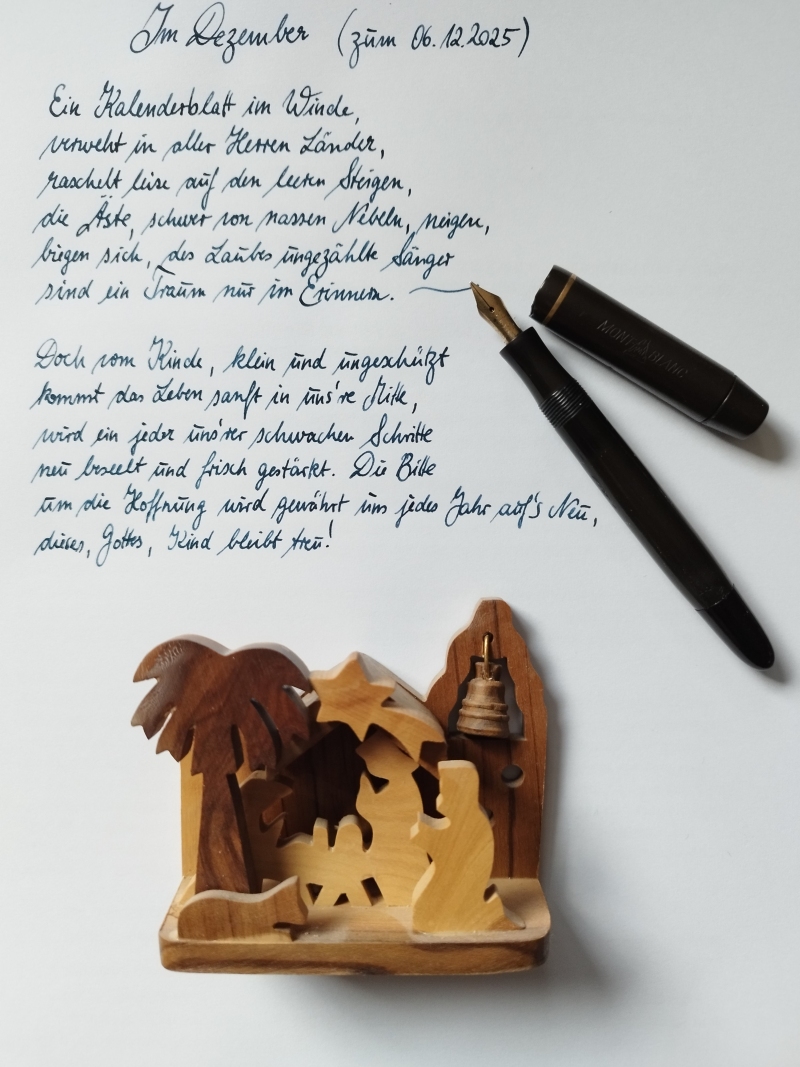 Im Dezember (zum 06.12.2025)
Ein Kalenderblatt im Winde,
verweht in aller Herren Länder,
raschelt leise auf den leeren Steigen,
die Äste, schwer von nassen Nebeln, neigen,
biegen sich, des Laubes ungezählte Sänger
sind ein Traum nur im Erinnern.
Doch vom Kinde, klein und ungeschützt
kommt das Leben sanft in uns're Mitte,
wird ein jeder uns'rer schwachen Schritte
neu beseelt und frisch gestärkt. Die Bitte
um die Hoffnung wird gewährt uns jedes Jahr auf's Neu,
dieses, Gottes, Kind bleibt treu!
MONTBLANC